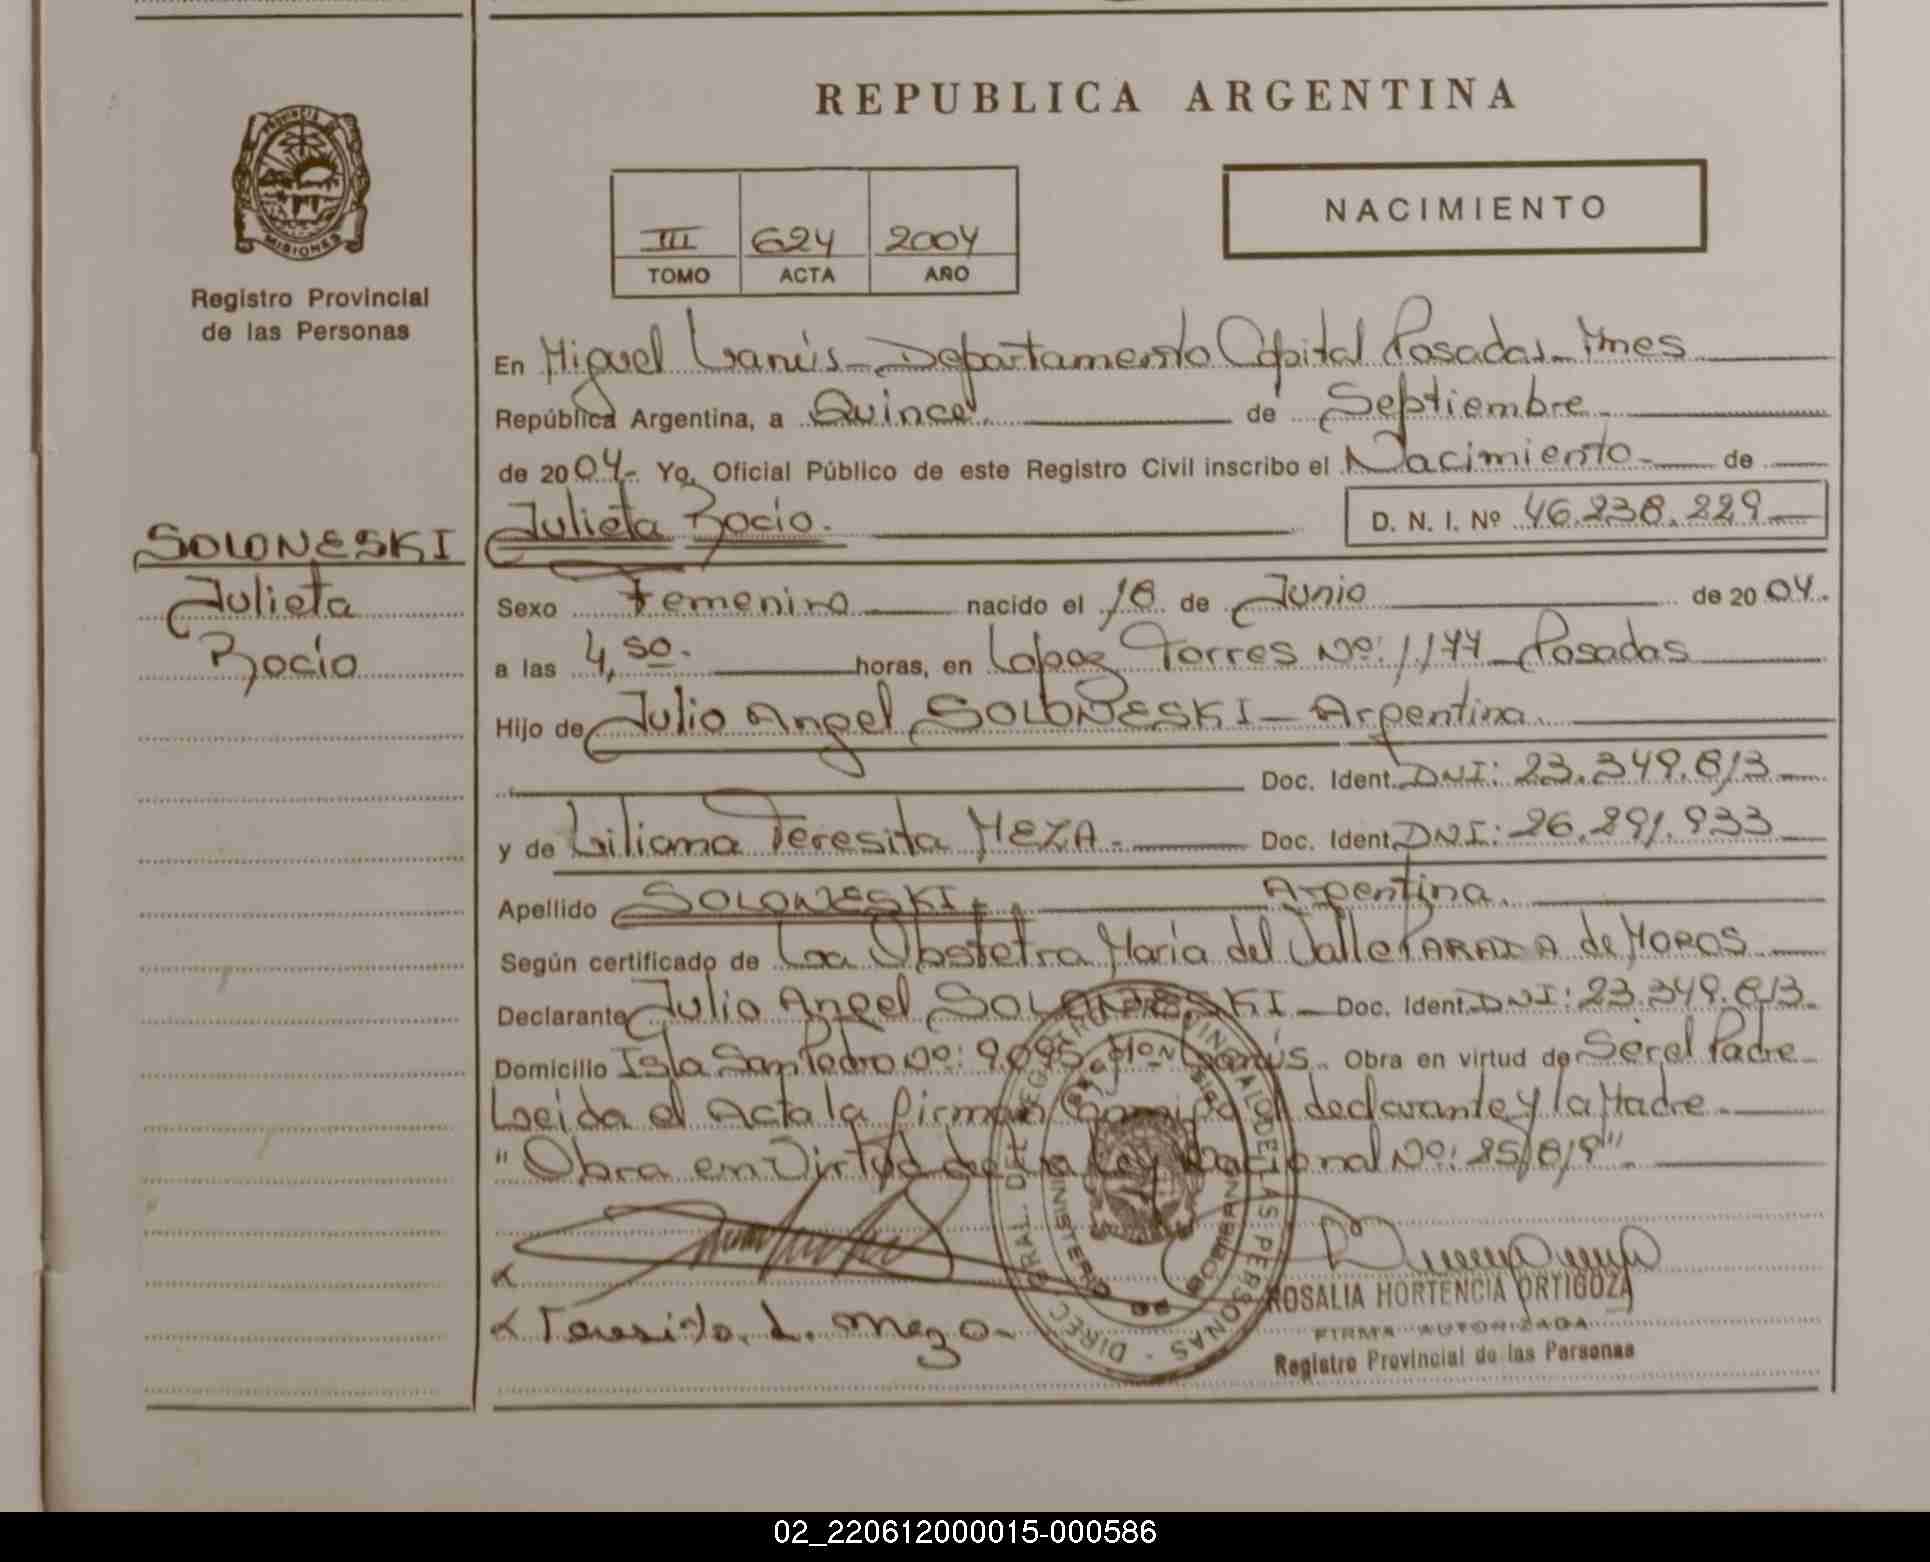 REPUBLICA ARGENTINA
PROVINCIA DE
MISIONES
Registro Provincial
de las Personas
NACIMIENTO
III 624 2004
TOMO ACTA AÑO
En Miguel Lanús - Departamento Capital Posadas - Mnes
República Argentina, a Quince de Septiembre
de 2004.- Yo, Oficial Público de este Registro Civil inscribo el Nacimiento - de
Julieta Rocio. D. N. I. Nº 46.238.229
SOLONESKI
Julieta
Rocio
Sexo Femenino nacido el 18 de Junio de 2004.
a las 4,50. horas, en Lopez Torres Nº: 1177 - Posadas
Hijo de Julio Angel SOLONESKI - Argentina.
Doc. Ident. DNI: 23.349.813
y de Liliana Teresita MEZA. Doc. Ident. DNI: 26.291.933
Apellido SOLONESKI Argentina.
Según certificado de La Obstetra Maria del Valle de MOROS
Declarante Julio Angel SOLONESKI - Doc. Ident. DNI: 23.349.813.
Domicilio Isla San Pedro nº: 9.095 Mº Lanús. Obra en virtud de Ser el Padre
Leida el Acta la firman Conmigo el declarante y la Madre
"Obra en Virtud de la Ley Nacional Nº: 25/8/9"
Teresita. L. Meza
DIREC. GRAL. DEL REGISTRO PROVINCIAL DE LAS PERSONAS
MINISTERIO DE GOBIERNO
ROSALIA HORTENCIA ORTIGOZA
FIRMA AUTORIZADA
Registro Provincial de las Personas
02_220612000015-000586